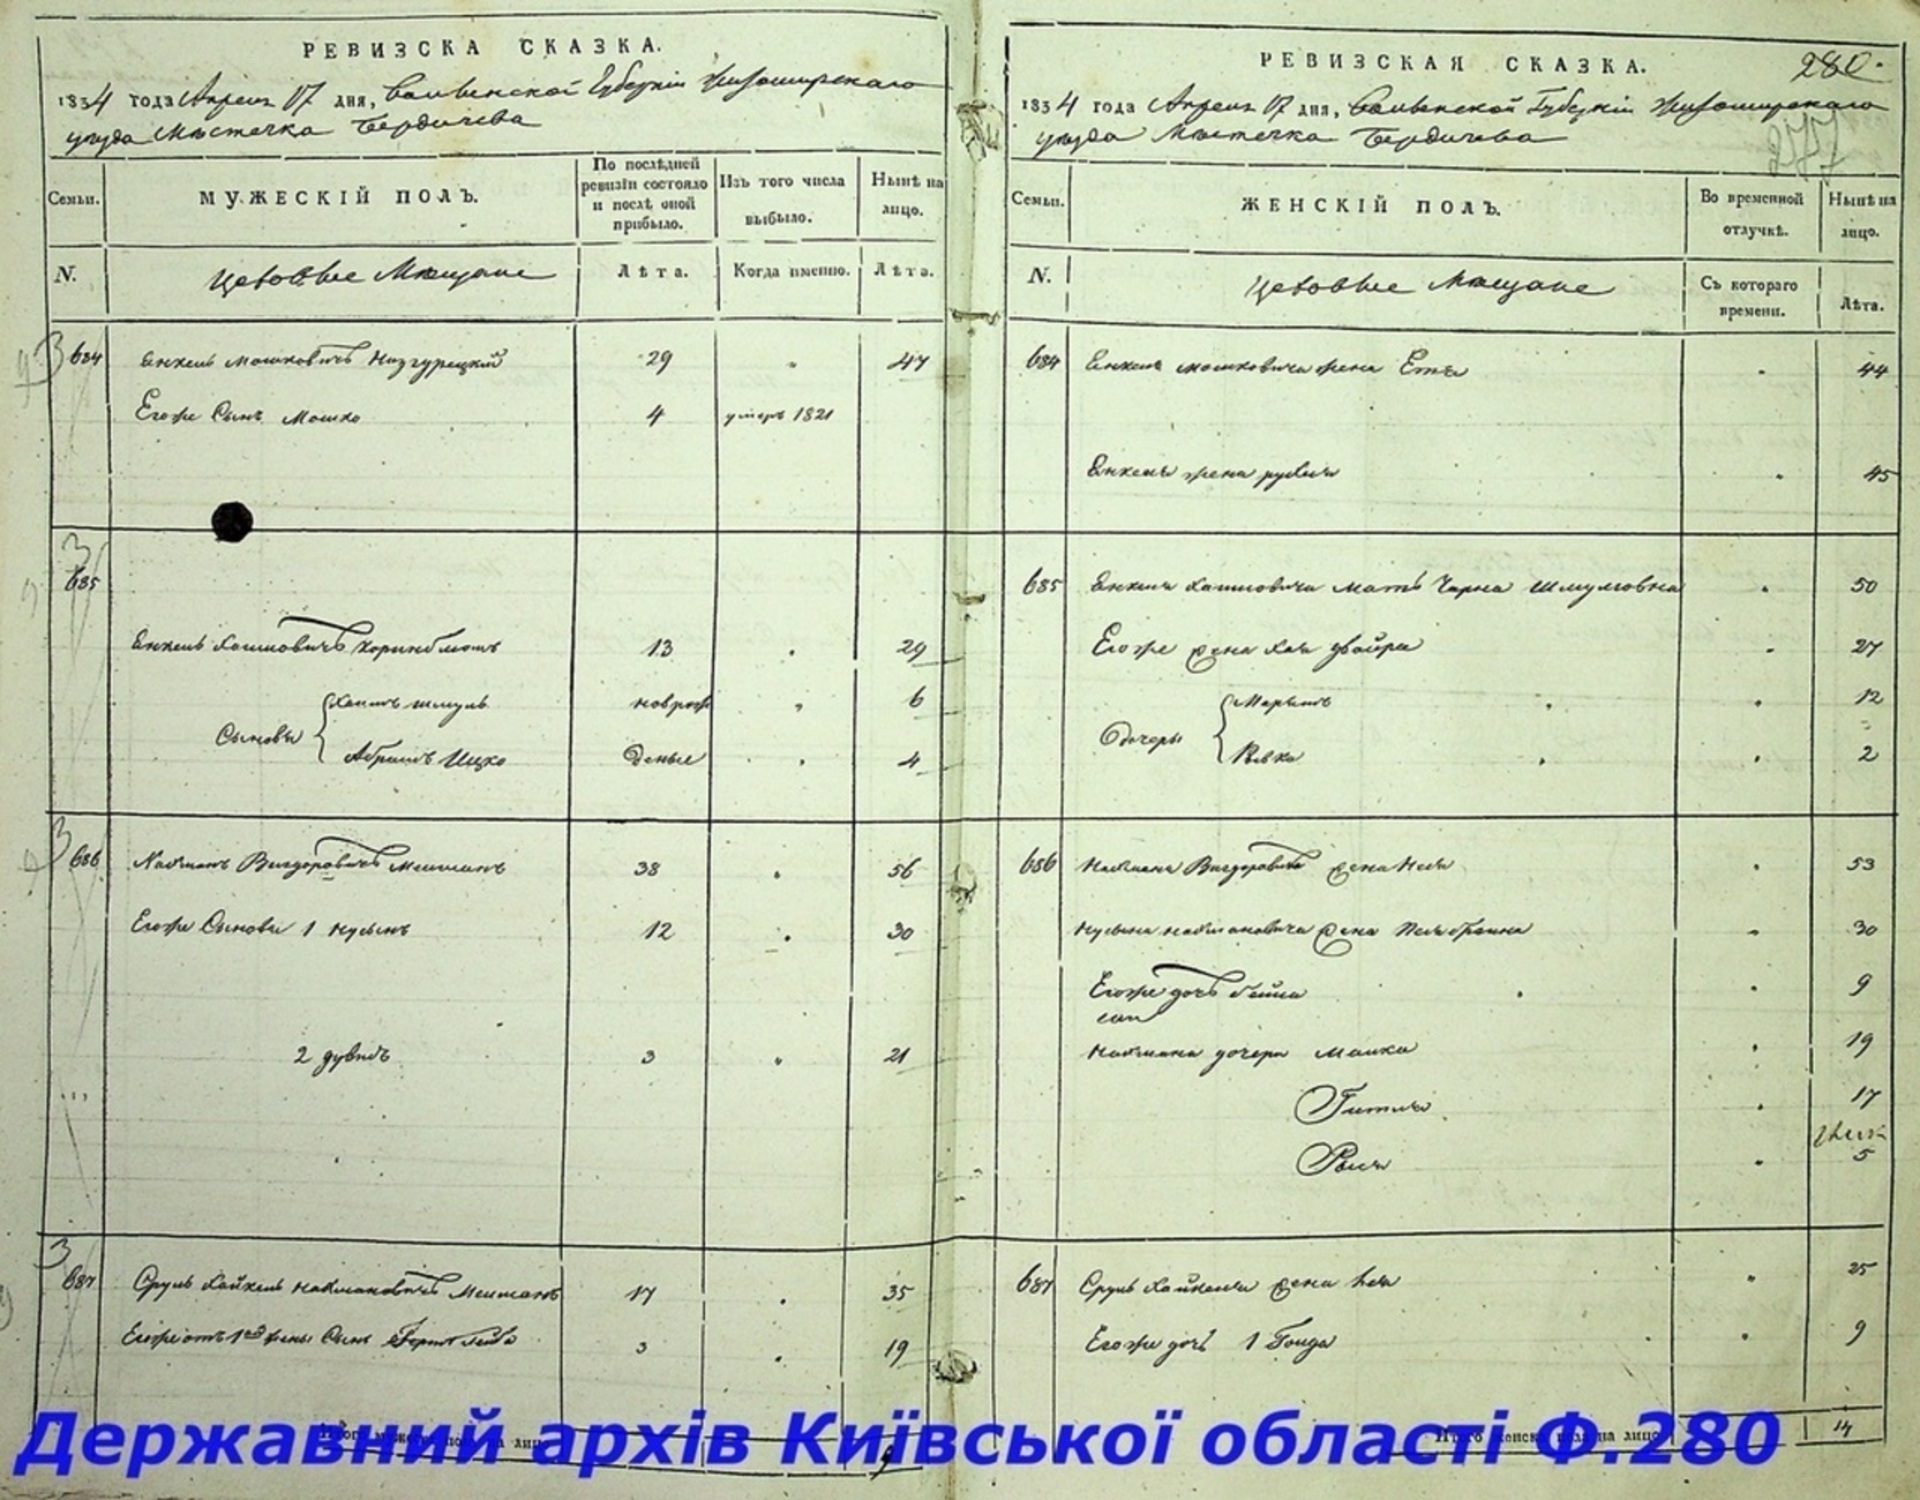 РЕВИЗСКА СКАЗКА.
1834 года Апреля 17 дня, Волынской Губернiи Житомирскаго
уезда Местечка Бердичева
Семьи.
МУЖЕСКIЙ ПОЛЪ.
По послѣдней ревизiи состояло и послѣ оной прибыло.
Изъ того числа выбыло.
Нынѣ на лицо.
N.
Цеховые Мещане
Лѣта.
Когда именно.
Лѣта.
684 Янкель Мошковичъ Низгурецкiй 29 47
Егоже Сынъ Мошко 4 умеръ 1821
685
Янкель Хаимовичъ 13 29
Сыновья Хаимъ Шмуль новрож 6
Абрамъ Ицко денные 4
686 Нахманъ Вигдоровичъ Мешманъ 38 56
Егоже Сыновья 1 Нусынъ 12 30
2 Дувидъ 3 21
687 Сруль Хайкель Нахмановичъ Мешманъ 17 35
Егоже отъ 1ой жены Сынъ 3 19
Итого мужеска пола на лицо 9
РЕВИЗСКАЯ СКАЗКА.
280.
277
1834 года Апреля 17 дня, Волынской Губернiи Житомирскаго
уезда Местечка Бердичева
Семьи.
ЖЕНСКIЙ ПОЛЪ.
Во временной отлучкѣ.
Нынѣ на лицо.
N.
Цеховые Мещане
Съ котораго времени.
Лѣта.
684 Янкеля Мошковича жена Етя 44
Янкеля жена Рухля 45
685 Янкеля Хаимовича мать Чарна Шмулговна 50
Егоже жена Хая Двойра 27
Дочеры Марьямъ 12
Ривка 2
686 Нахмана Вигдоровича жена Неся 53
Нусына Нахмановича жена 30
Егоже дочь Бейла 9
Нахмана дочери Малка 19
Гитля 17
Рыся 5
687 Сруль Хайкеля жена Лея 25
Егоже дочь 1 Голда 9
Итого женска пола на лицо 14
Державний архів Київської області Ф.280